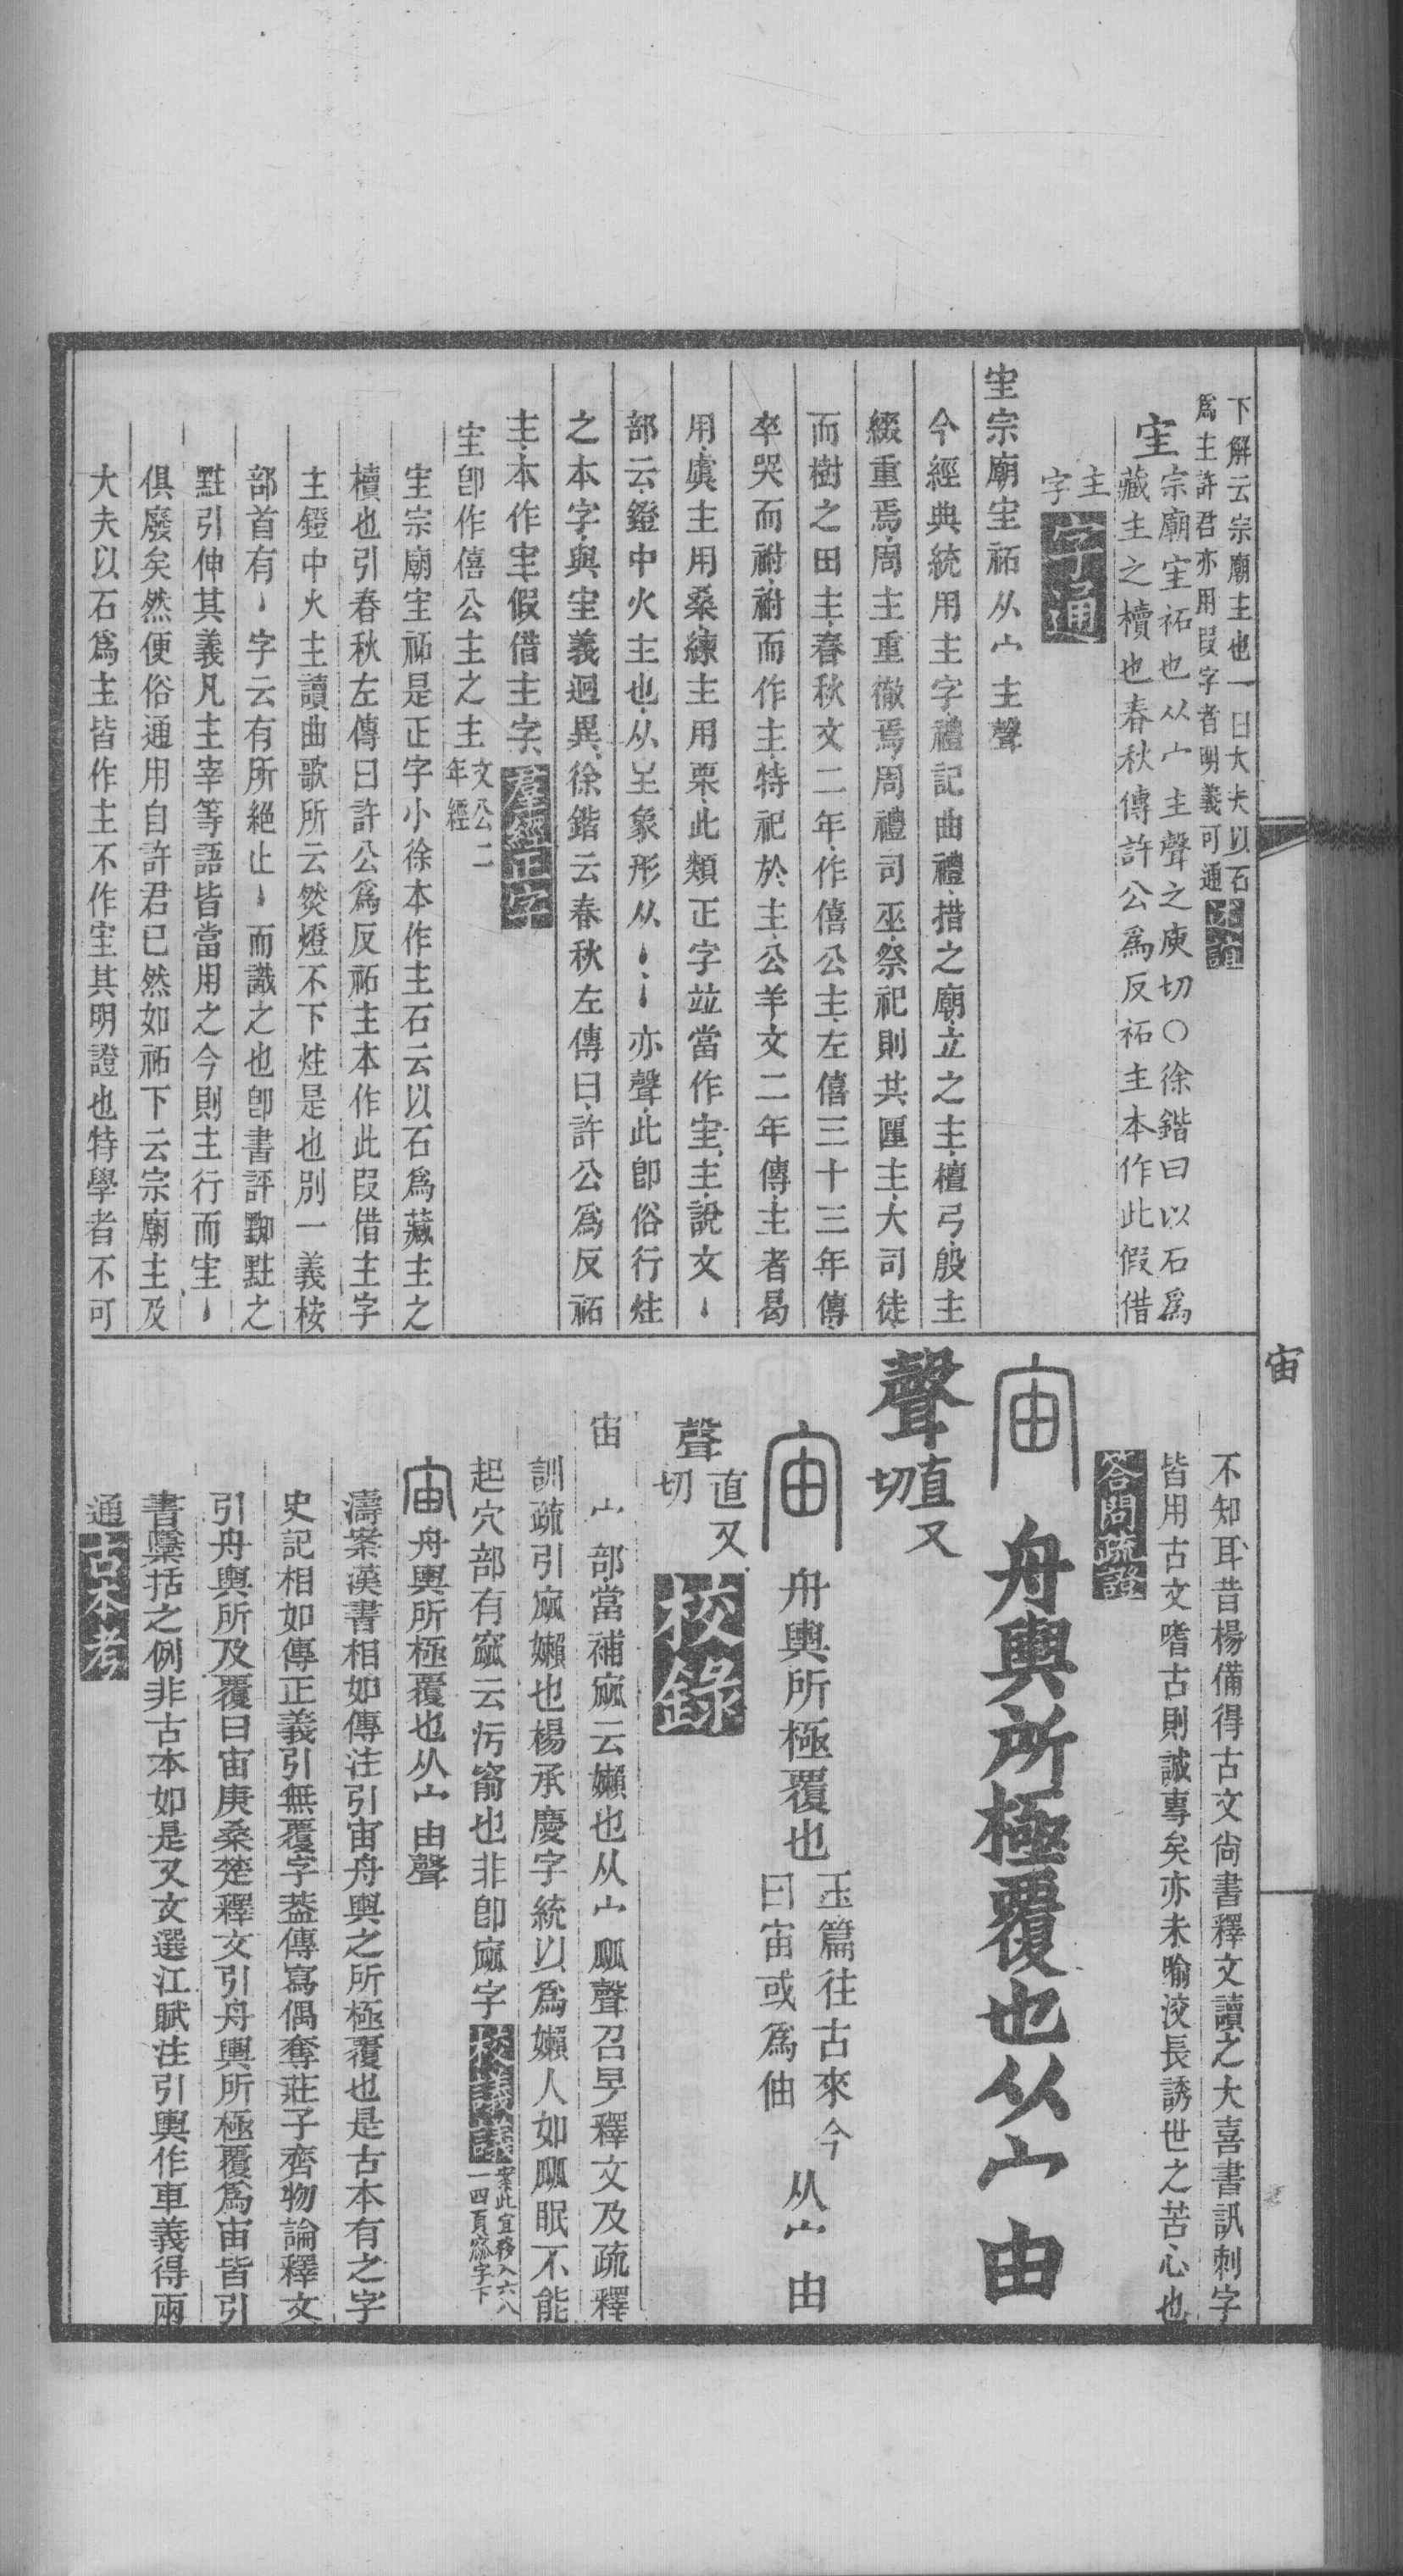 下解云宗廟主也一曰大夫以石
爲主許君亦用叚字者明義可通
宔 宗廟宔祏也从宀主聲之庾切〇徐鍇曰以石爲
藏主之櫝也春秋傳許公爲反祏主本作此假借
主
字 字通
宔宗廟宔祏从宀主聲
今經典統用主字禮記曲禮措之廟立之主檀弓殷主
綴重焉周主重徹焉周禮司巫祭祀則共匰主大司徒
而樹之田主春秋文二年作僖公主左僖三十三年傳
卒哭而祔祔而作主特祀於主公羊文二年傳主者曷
用虞主用桑練主用栗此類正字竝當作宔主說文丶
部云鐙中火主也从𤯓象形从丶丶亦聲此卽俗行炷
之本字與宔義迥異徐鍇云春秋左傳曰許公爲反祏
主本作宔假借主字 羣經正字
宔卽作僖公主之主 文公二
年經
宔宗廟宔祏是正字小徐本作主石云以石爲藏主之
櫝也引春秋左傳曰許公爲反祏主本作此叚借主字
主鐙中火主讀曲歌所云㷊燈不下炷是也別一義桉
部首有丶字云有所絕止丶而識之也卽書評㸃黈之
黈引伸其義凡主宰等語皆當用之今則主行而宔丶
俱廢矣然便俗通用自許君已然如祏下云宗廟主及
大夫以石爲主皆作主不作宔其明證也特學者不可
宙
不知耳昔楊備得古文尙書釋文讀之大喜書訊刺字
皆用古文嗜古則誠專矣亦未喻洨長誘世之苦心也
答問疏證
宙 舟輿所極覆也从宀由
聲 直又
切
宙 舟輿所極覆也 玉篇往古來今
曰宙或爲伷 从宀由
聲 直又
切 校錄
宙 宀部當補㼌云嬾也从宀㼌聲召旻釋文及疏釋
訓疏引㼌嬾也楊承慶字統以爲嬾人如㼌眠不能
起穴部有窳云污窬也非卽㼌字 校議議 案此宜移入六八
一四頁窳字下
宙舟輿所極覆也从宀由聲
濤案漢書相如傳注引宙舟輿之所極覆也是古本有之字
史記相如傳正義引無覆字葢傳寫偶奪莊子齊物論釋文
引舟輿所及覆曰宙庚桑楚釋文引舟輿所極覆爲宙皆引
書櫽括之例非古本如是又文選江賦注引輿作車義得兩
通 古本考